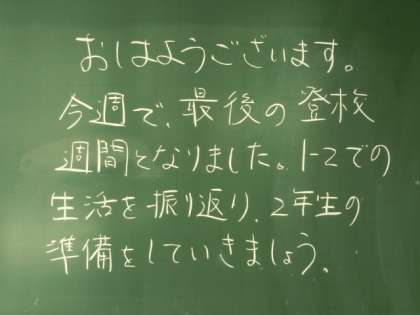 おはようございます。
今週で、最後の登校
週間となりました。1-2での
生活を振り返り、2年生の
準備をしていきましょう。